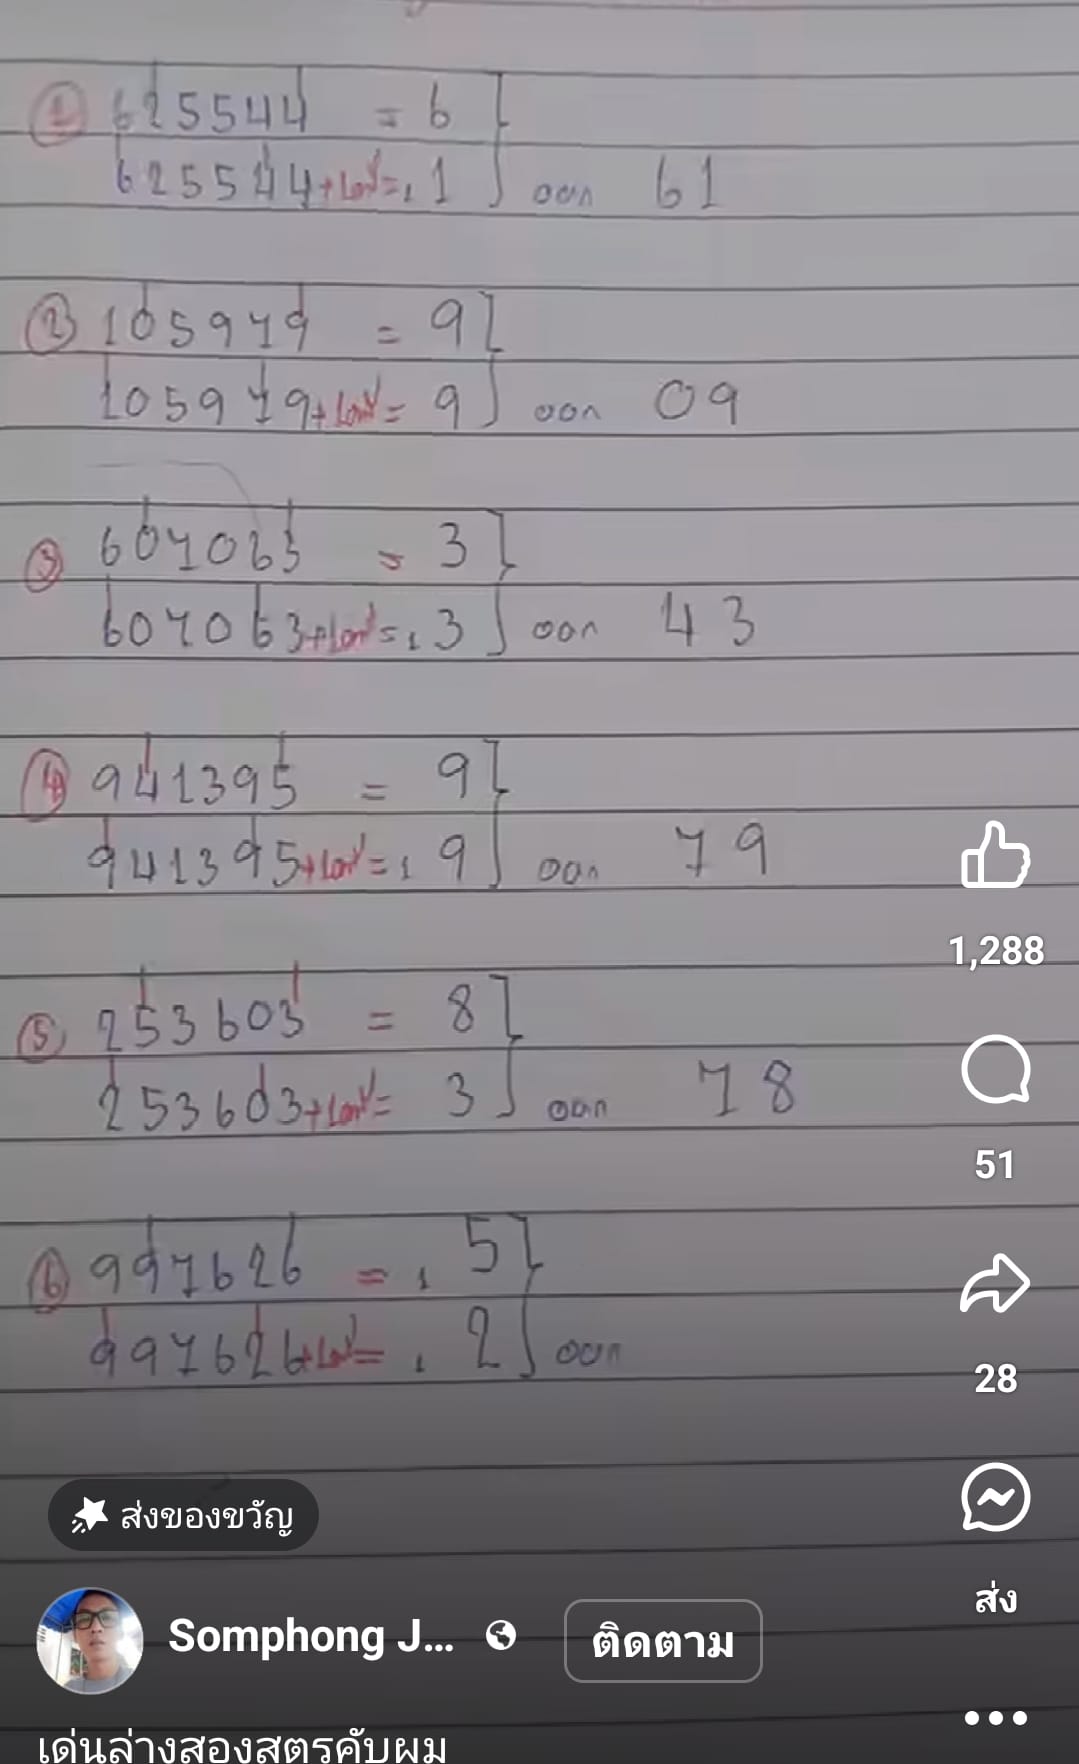 ① 625544 = 6 }
625544+เลขปี=1 1 } ออก 61
② 105979 = 9 }
105979+เลขปี= 9 } ออก 09
③ 607063 = 3 }
607063+เลขปี=1 3 } ออก 43
④ 941395 = 9 }
941395+เลขปี=1 9 } ออก 79
⑤ 253603 = 8 }
253603+เลขปี= 3 } ออก 78
⑥ 997626 = 1 5 }
997626+เลขปี= 1 2 } ออก
1,288
51
28
ส่งของขวัญ
ส่ง
Somphong J... ติดตาม
เด่นล่างสองสูตรคับผม